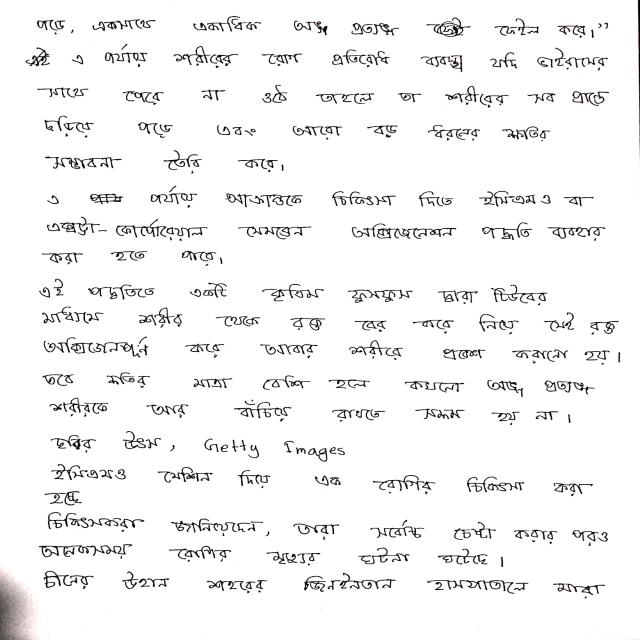 পড়ে, একসাথে একাধিক অঙ্গ প্রত্যঙ্গ ফেইল করে।”
এ পর্যায়ে শরীরের রোগ প্রতিরোধি ব্যবস্থা যদি ভাইরাসের
সাথে পেরে না ওঠে তাহলে তা শরীরের সব প্রান্তে
ছড়িয়ে পড়ে এবং আরো বড় ধরনের ক্ষতির
সম্ভাবনা তৈরি করে।
এ পর্যায়ে আক্রান্তকে চিকিৎসা দিতে ইসিএমও বা
এক্সট্রা-কোর্পোরেয়াল মেমব্রেন অক্সিজেনেশন পদ্ধতি ব্যবহার
করা হতে পারে।
এই পদ্ধতিতে একটি কৃত্রিম ফুসফুস দ্বারা টিউবের
মাধ্যমে শরীর থেকে রক্ত বের করে নিয়ে সেই রক্ত
অক্সিজেনপূর্ণ করে আবার শরীরে প্রবেশ করানো হয়।
তবে ক্ষতির মাত্রা বেশি হলে কখনো অঙ্গ প্রত্যঙ্গ
শরীরকে আর বাঁচিয়ে রাখতে সক্ষম হয় না।
ছবির উৎস, Getty Images
ইসিএমও মেশিন দিয়ে এক রোগির চিকিৎসা করা
হচ্ছে
চিকিৎসকরা জানিয়েছেন, তারা সর্বোচ্চ চেষ্টা করার পরও
অনেকসময় রোগির মৃত্যুর ঘটনা ঘটেছে।
চীনের উহান শহরের জিনইনতান হাসপাতালে মারা